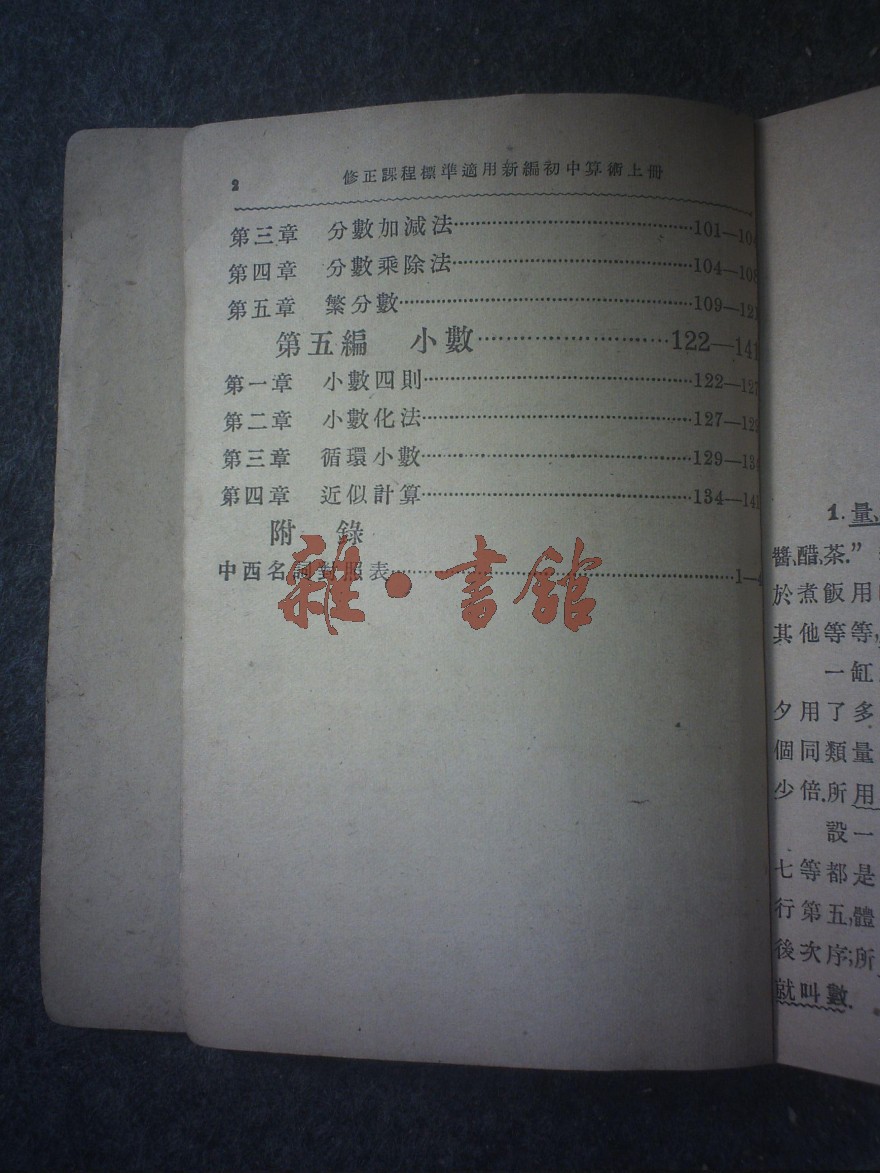 2
修正課程標準適用新編初中算術上冊
第三章 分數加減法……101—104
第四章 分數乘除法……104—108
第五章 繁分數……109—121
第五編 小數……122—141
第一章 小數四則……122—127
第二章 小數化法……127—129
第三章 循環小數……129—134
第四章 近似計算……134—141
附錄
中西名詞對照表……1—4
雜·書館
1. 量、
醬、醋、茶.”
於煮飯用
其他等等,
一缸
夕用了多
個同類量
少倍.所用
設一
七等都是
行第五,體
後次序;所
就叫數.